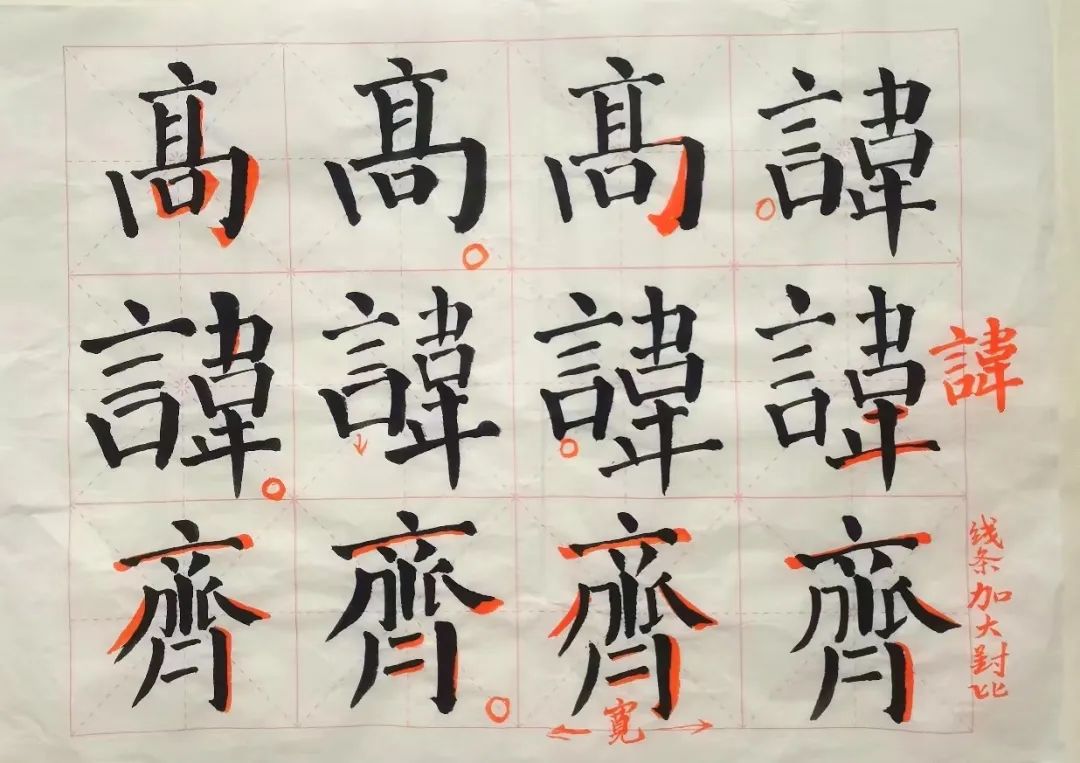 髙髙髙諱
諱諱諱諱
諱
齊齊齊齊
线条加大對比
寬